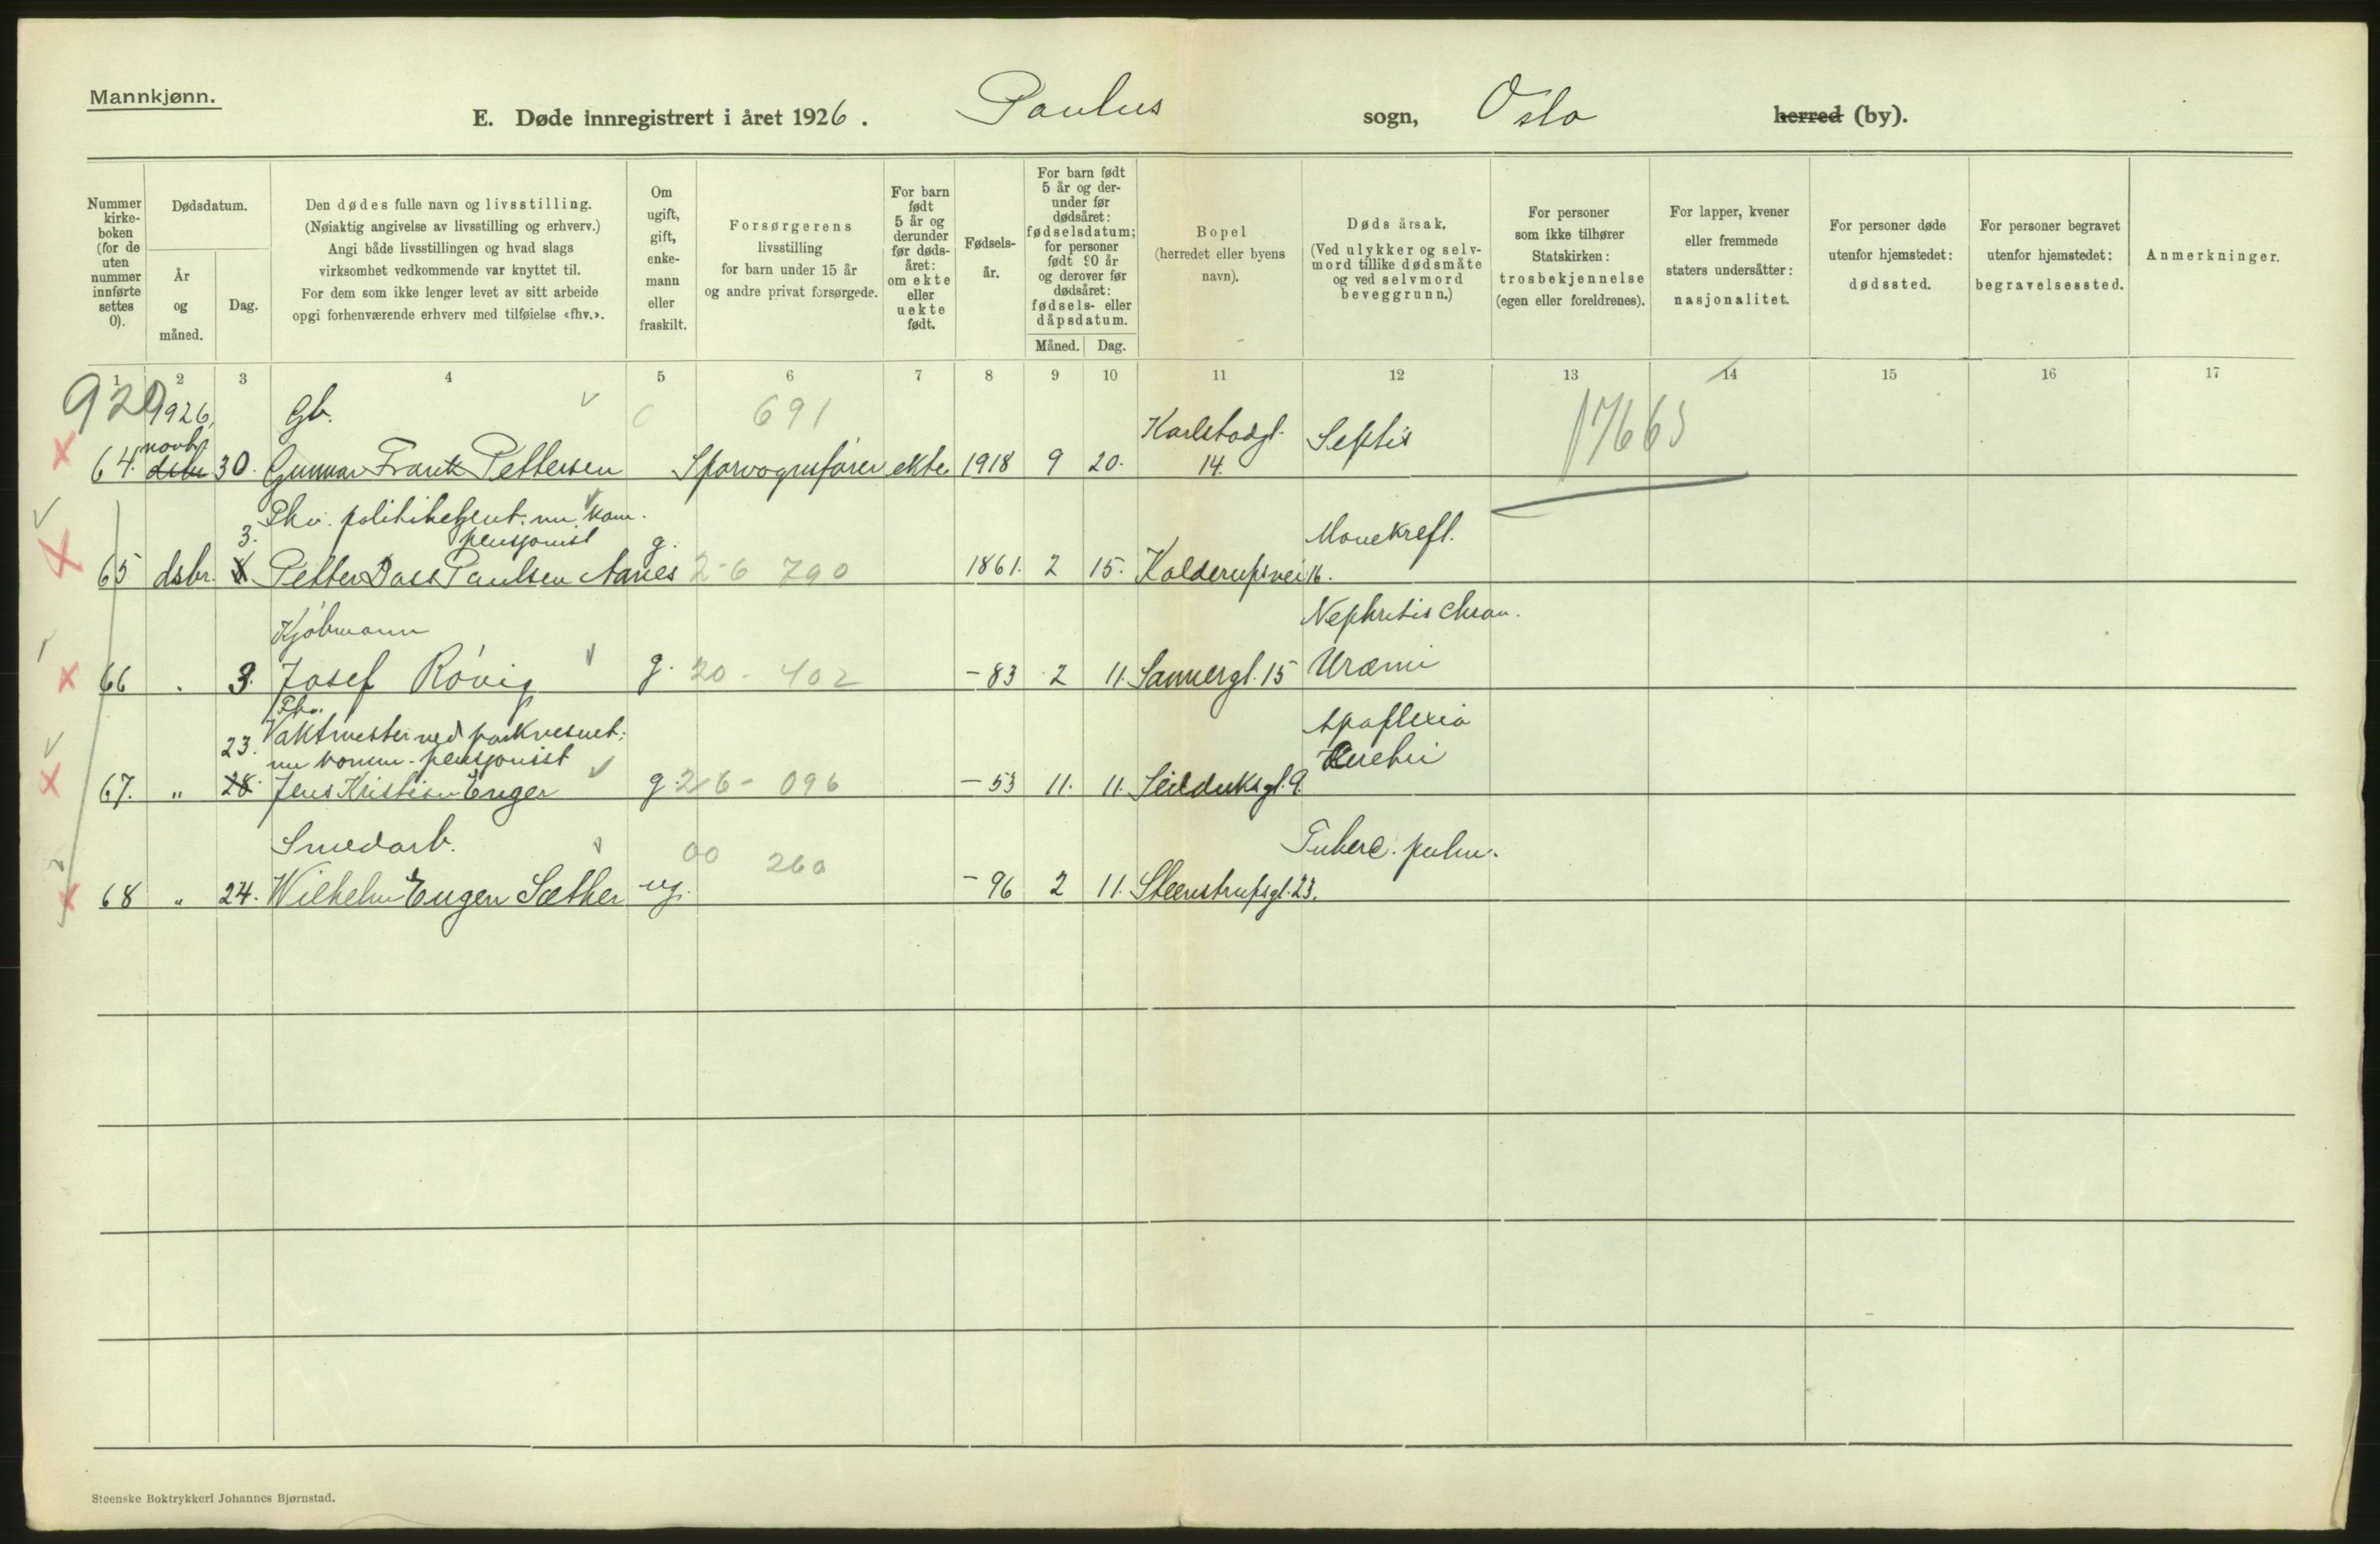 Mannkjønn.
E. Døde innregistrert i året 1926. Paulus sogn, Oslo herred (by).
Nummer kirke- boken (for de uten nummer innførte settes 0).
Dødsdatum.
År og måned.
Dag.
Den dødes fulle navn og livsstilling.
(Nøiaktig angivelse av livsstilling og erhverv.)
Angi både livsstillingen og hvad slags
virksomhet vedkommende var knyttet til.
For dem som ikke lenger levet av sitt arbeide
opgi forhenværende erhverv med tilføielse «fhv.».
Om ugift, gift, enke- mann eller fraskilt.
Forsørgerens
livsstilling
for barn under 15 år
og andre privat forsørgede.
For barn født 5 år og derunder før døds- året: om ekte eller uekte født.
Fødsels- år.
For barn født 5 år og der- under før dødsåret: fødselsdatum; for personer født 90 år og derover før dødsåret: fødsels- eller dåpsdatum.
Måned. Dag.
Bopel
(herredet eller byens
navn).
Døds årsak.
(Ved ulykker og selv-
mord tillike dødsmåte
og ved selvmord
beveggrunn.)
For personer
som ikke tilhører
Statskirken:
trosbekjennelse
(egen eller foreldrenes).
For lapper, kvener
eller fremmede
staters undersåtter:
nasjonalitet.
For personer døde
utenfor hjemstedet:
dødssted.
For personer begravet
utenfor hjemstedet:
begravelsessted.
Anmerkninger.
1 2 3 4 5 6 7 8 9 10 11 12 13 14 15 16 17
920 1926, Gb. 0 691 Karlstadgt. 17663
novbr
64. dsbr 30. Gunnar Frank Pettersen Sporvognsfører ekte 1918 9 20. 14. Septis
Fhv. politibetjent; nu kom.
3. pensjonist g. Mavekreft.
65 dsbr. Petter Dass Paulsen Aanes 2-6 790 1861. 2 15. Kalderupsvei 16.
Kjøbmann Nephritis chron.
66 . 3. Josef Røvig g. 20 - 402 - 83 2 11. Sannergt. 15 Uræmi
Fhv.
23. Vaktmester ved parkvesnet; Apoplexia
nu komm. pensjonist cerebri
67. " 28. Jens Kristian Enger g. 2-6 - 096 - 53 11. 11. Seilduksgt. 9.
Smedarb. 00 260 Tuberc. pulm.
68 " 24. Wilhelm Eugen Sæther ug. - 96 2 11. Steenstrupsgt. 23.
Steenske Boktrykkeri Johannes Bjørnstad.